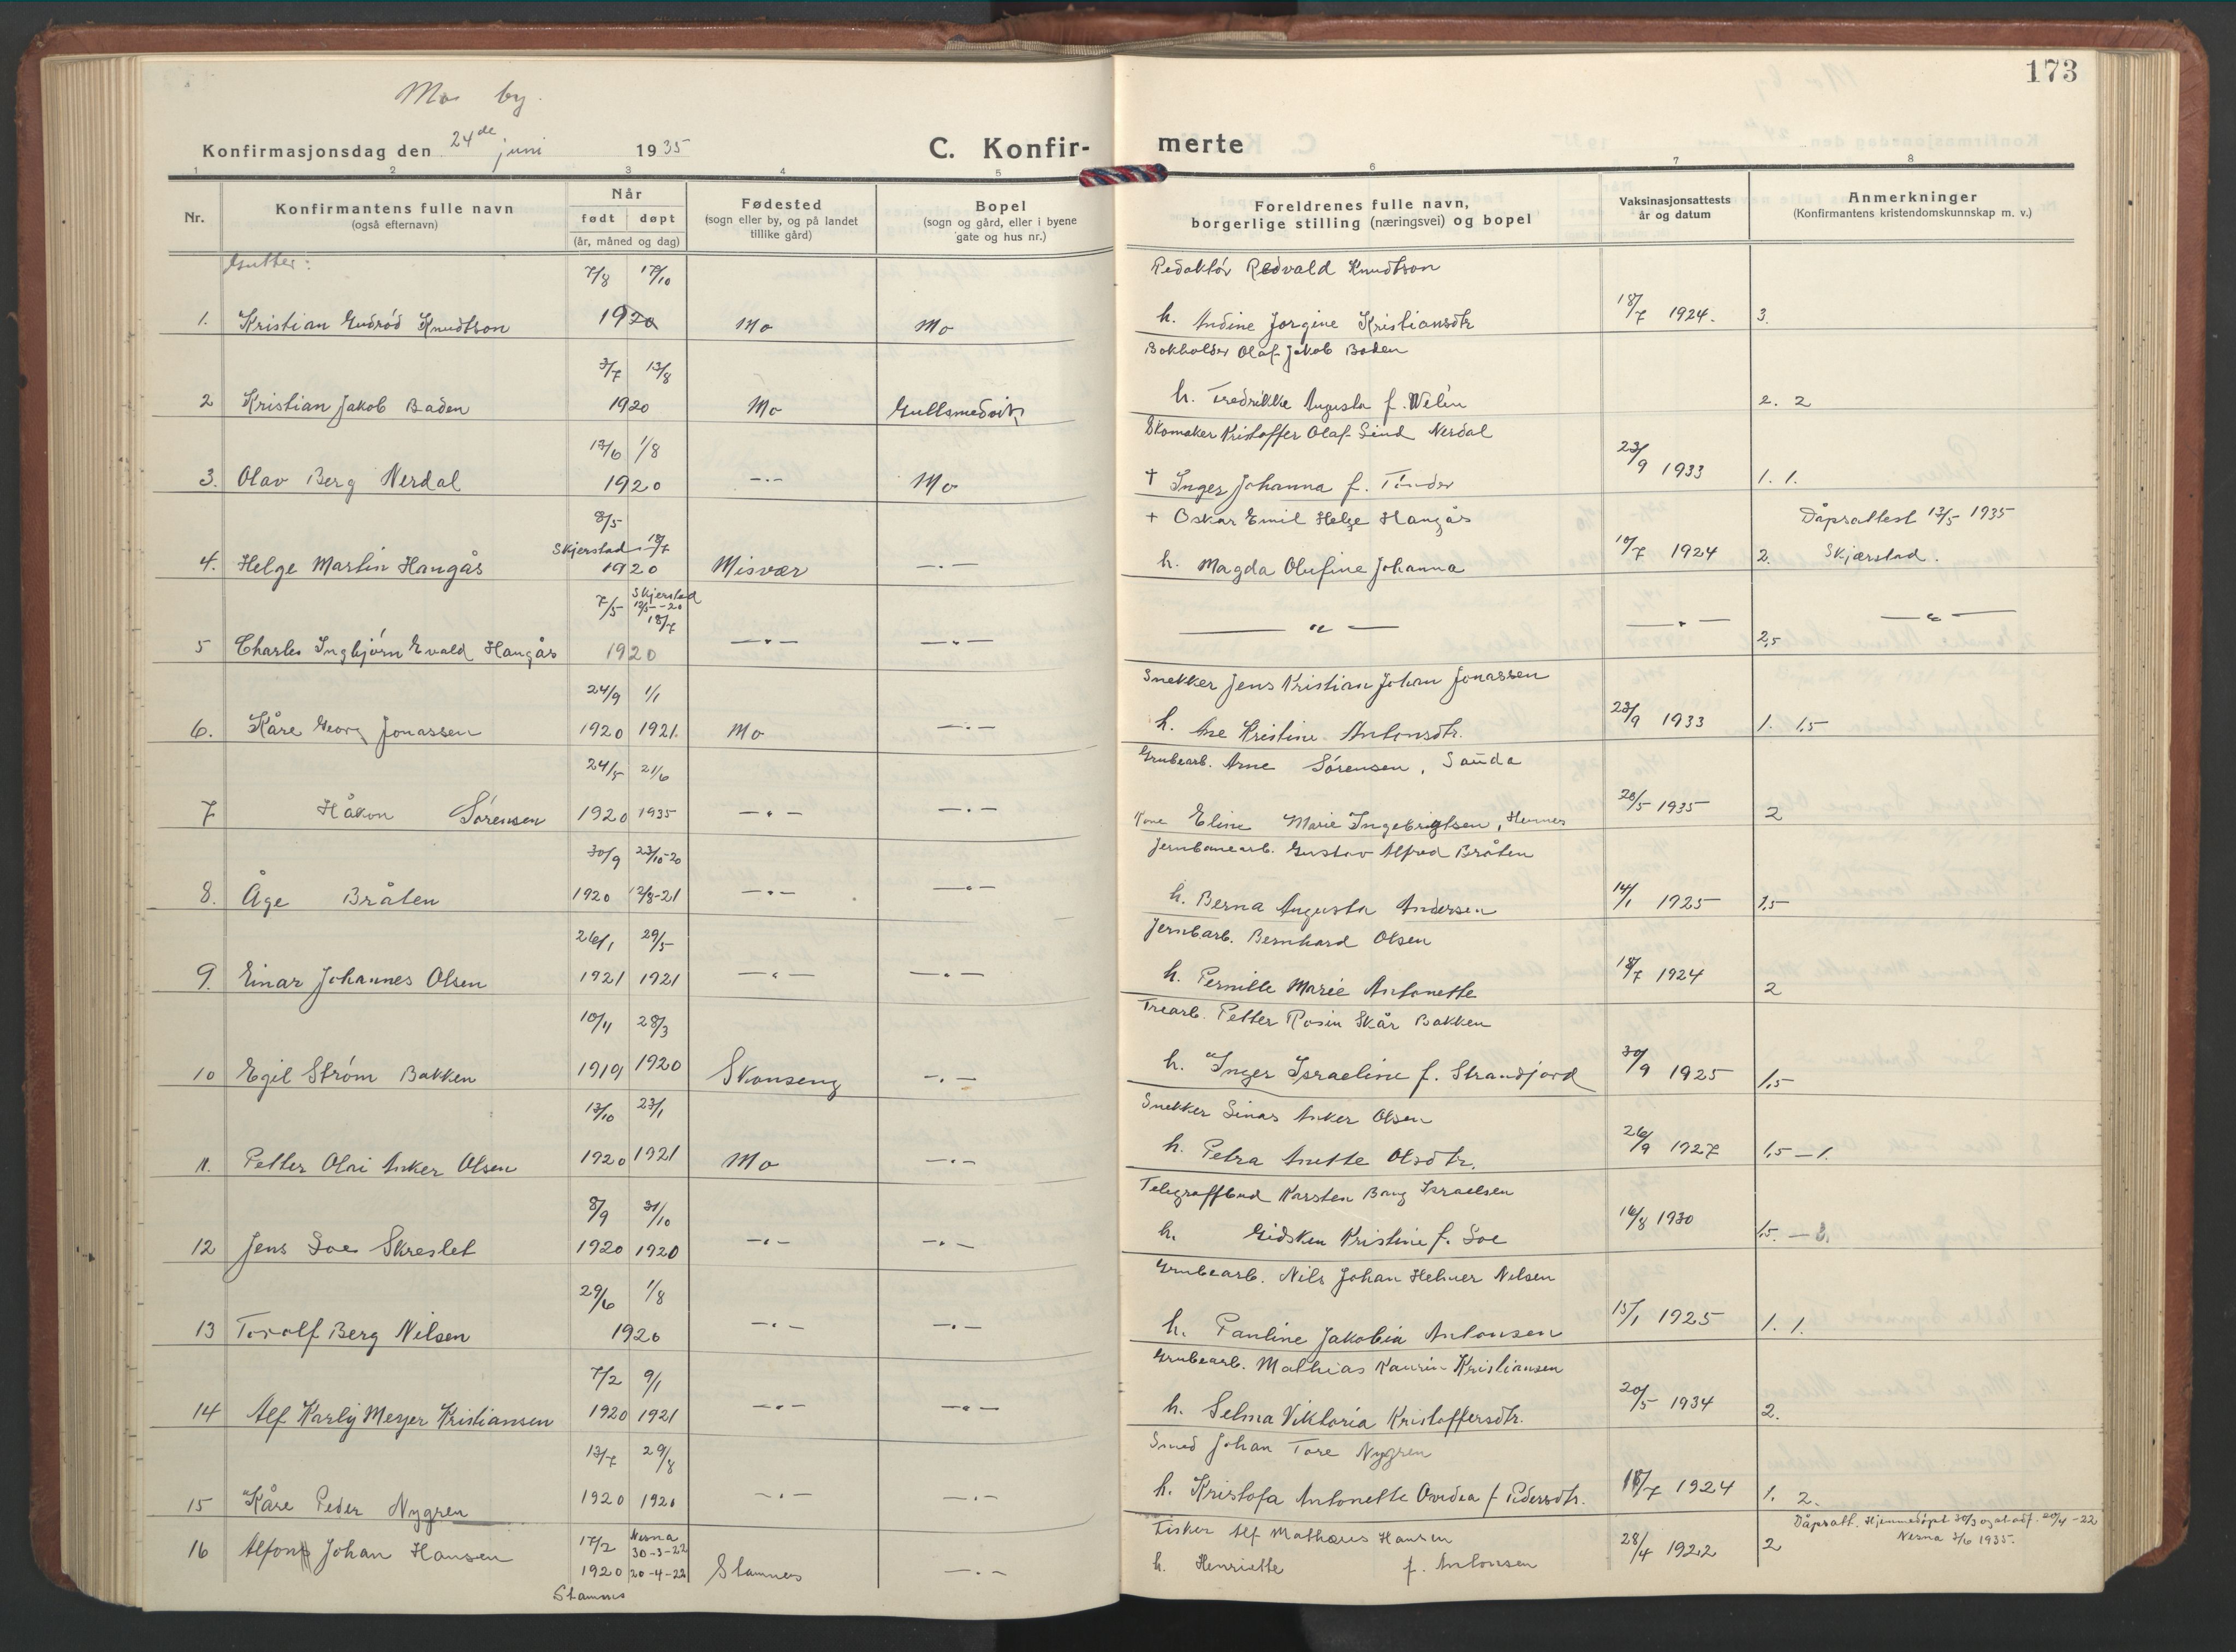 173
Mo by.
Konfirmasjonsdag den 24de juni 1935
C. Konfirmerte
1 2 3 4 5 6 7 8
Nr.
Konfirmantens fulle navn
(også efternavn)
Når
født døpt
(år, måned og dag)
Fødested
(sogn eller by, og på landet
tillike gård)
Bopel
(sogn og gård, eller i byene
gate og hus nr.)
Foreldrenes fulle navn,
borgerlige stilling (næringsvei) og bopel
Vaksinasjonsattests
år og datum
Anmerkninger
(Konfirmantens kristendomskunnskap m. v.)
Gutter:
7/8 17/10 Redaktør Redvald Knudtson
1. Kristian Gudrød Knudtson 1920 Mo Mo h. Andine Jorgine Kristiansdtr 18/7 1924. 3.
3/7 13/8 Bokholder Olaf Jakob Baden
2 Kristian Jakob Baden 1920 Mo Gullsmedvik h. Fredrikke Augusta f. Welin 2. 2
13/6 1/8 Skomaker Kristoffer Olaf Sind Nerdal
3. Olav Berg Nerdal 1920 -.- Mo † Inger Johanna f. Tønder 23/9 1933 1. 1.
8/5 + Oskar Emil Helge Hangås Dåpsattest 13/5 1935
4. Helge Martin Hangås Skjerstad 18/7 1920 Misvær -.- h. Magda Olufine Johanna 18/7 1924 2. Skjærstad.
7/5 Skjerstad 12/5-20 18/7
5 Charles Ingbjørn Evald Hangås 1920 -.- -.- -"- -.- 2,5 -"-
24/9 1/1 Snekker Jens Kristian Johan Jonassen
6. Kåre Georg Jonassen 1920 1921. Mo -.- h. Ane Kristine Antonsdtr. 23/9 1933 1. 1,5
24/5 21/6 Grubearb. Arne Sørensen, Sauda
7 Håkon Sørensen 1920 1935 -.- -.- Kone Eline Marie Ingebrigtsen, Hemnes 20/5 1935 2
30/9 23/10-20 Jernbanearb. Gustav Alfred Bråten
8. Åge Bråten 1920 12/8-21 -.- -.- h. Berna Augusta Andersen 14/1 1925 1,5
26/1 29/5 Jernbarb. Bernhard Olsen
9. Einar Johannes Olsen 1921 1921 -.- -.- h. Pernille Marie Antonette 18/7 1924 2
10/11 28/3 Trearb. Petter Rosin Skår Bakken
10 Egil Strøm Bakken 1919 1920 Skonseng -.- h. Inger Israeline f. Strandjord 30/9 1925 1,5
13/10 23/1 Snekker Sinas Anker Olsen
11. Petter Olai Anker Olsen 1920 1921 Mo -.- h. Petra Anette Olsdtr. 26/9 1927 1,5 - 1.
8/9 31/10 Telegrafbud Karsten Bang Israelsen
12 Jens Soe Skreslet 1920 1920 -.- -.- h. Gidsken Kristine f. Soe 16/8 1930 1,5. -
29/6 1/8 Grubearb. Nils Johan Helmer Nilsen
13 Torolf Berg Nilsen 1920 -.- -.- h. Pauline Jakobia Antonsen 15/1 1925 1. 1.
7/2 9/1 Grubearb. Mathias Kaurin Kristiansen
14 Alf Karly Meyer Kristiansen 1920 1921 -.- -.- h. Selma Viktoria Kristoffersdtr. 20/5 1934 2.
13/7 29/8 Smed Johan Tore Nygren
15 Kåre Peder Nygren 1920 1920 -.- -.- h. Kristofa Antonette Ovidea f Pedersdtr. 18/7 1924 1. 2.
17/2 Nesna 30-3-22 Fisker Alf Mathæus Hansen Dåpsatt. Hjemmedøpt 30/3 og st.adf. 20/4-22
16 Alfons Johan Hansen 1920 20-4-22 Stamnes -.- h. Henriette f. Antonsen 28/4 1922 2 Nesna 3/6 1935.
Stamnes